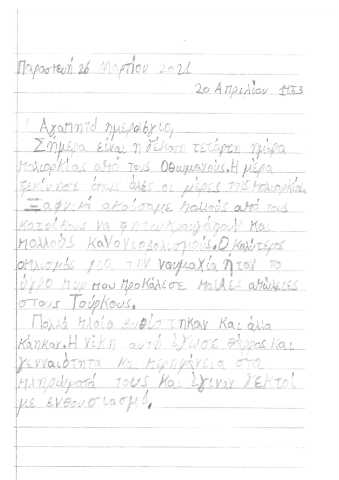 Παρασκευή 26 Μαρτίου 2021
20 Απριλίου 1453
Αγαπητό ημερολόγιο,
Σήμερα είναι η δέκατη τετάρτη ημέρα
πολιορκίας από τους Οθωμανούς. Η μέρα
ξεκίνησε όπως όλες οι μέρες της πολιορκίας.
Ξαφνικά ακούσαμε πολλούς από τους
κατοίκους να και
πολλούς κανονιοβολισμούς. Ο καλύτερος
οπλισμός για την ναυμαχία ήταν το
υγρό πυρ που προκάλεσε πολλές απώλειες
στους Τούρκους.
Πολλά πλοία βυθίστηκαν και άλλα
κάηκαν. Η νίκη αυτή έδωσε θάρρος και
γενναιότητα και περηφάνεια στα
πληρώματά τους και έγιναν δεκτοί
με ενθουσιασμό.